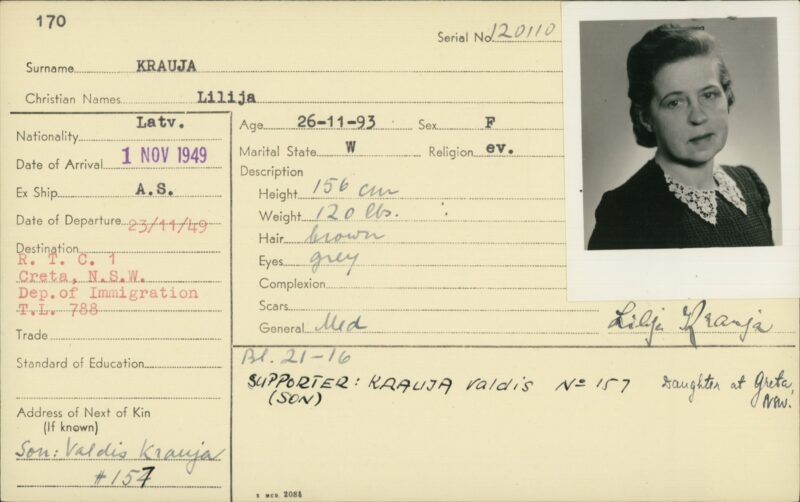 170
Serial No. 120110
Surname KRAUJA
Christian Names Lilija
Nationality Latv.
Date of Arrival 1 NOV 1949
Ex Ship A.S.
Date of Departure 23/11/49
Destination
R. T. C. 1
Creta, N.S.W.
Dep.of Immigration
T.L. 788
Trade
Standard of Education
Address of Next of Kin
(If known)
Son: Valdis Krauja
#157
Age 26-11-93 Sex F
Marital State W Religion ev.
Description
Height 156 cm
Weight 120 lbs.
Hair brown
Eyes grey
Complexion
Scars
General Med
Lilija Krauja
Bl. 21-16
SUPPORTER: KRAUJA Valdis No 157 Daughter at Greta,
(SON) NSW.